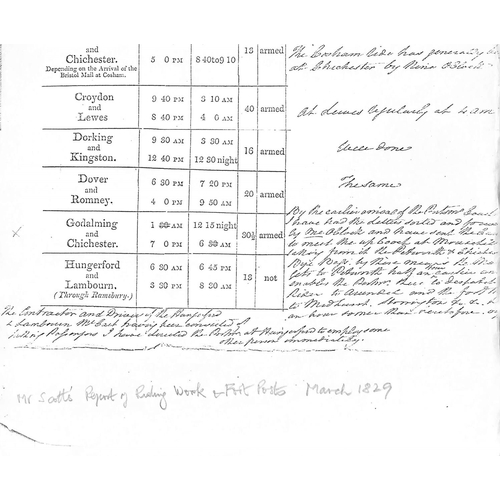 and
Chichester. 5 0 PM 8 40 to 9 10 13 armed
Depending on the Arrival of the
Bristol Mail at Cosham.
The Cosham Ride has generally
at Chichester by Nine
Croydon 9 40 PM 3 10 AM
and 40 armed
Lewes 8 40 PM 4 0 AM
At Lewes regularly at 4 am
Dorking 9 30 AM 3 30 AM
and 16 armed
Kingston. 12 40 PM 12 30 night
Well done
Dover 6 30 PM 7 20 PM
and 20 armed
Romney. 4 0 PM 9 50 AM
The same
Godalming 1 AM 12 15 night
and 30½ armed
Chichester. 7 0 PM 6 30 AM
By the earlier arrival of the
I have had the letters sorted and
by and have sent the
to meet the up Coach at
from it the Petworth &
Bags. By these means the
to Petworth half an
the there to despatch
Rider to Arundel and the foot
to Medhurst, Storrington &c &c
an hour more than heretofore
Hungerford 6 30 AM 6 45 PM
and 13 not
Lambourn. 3 30 PM 8 30 AM
(Through Ramsbury.)
The Contractor and Driver of the Hungerford
& Lambourn Ml Cart having been convicted of
Passengers I have directed the at Hungerford to employ some
other person immediately.
Mr Scott's Report of Riding Work & Foot Posts March 1829